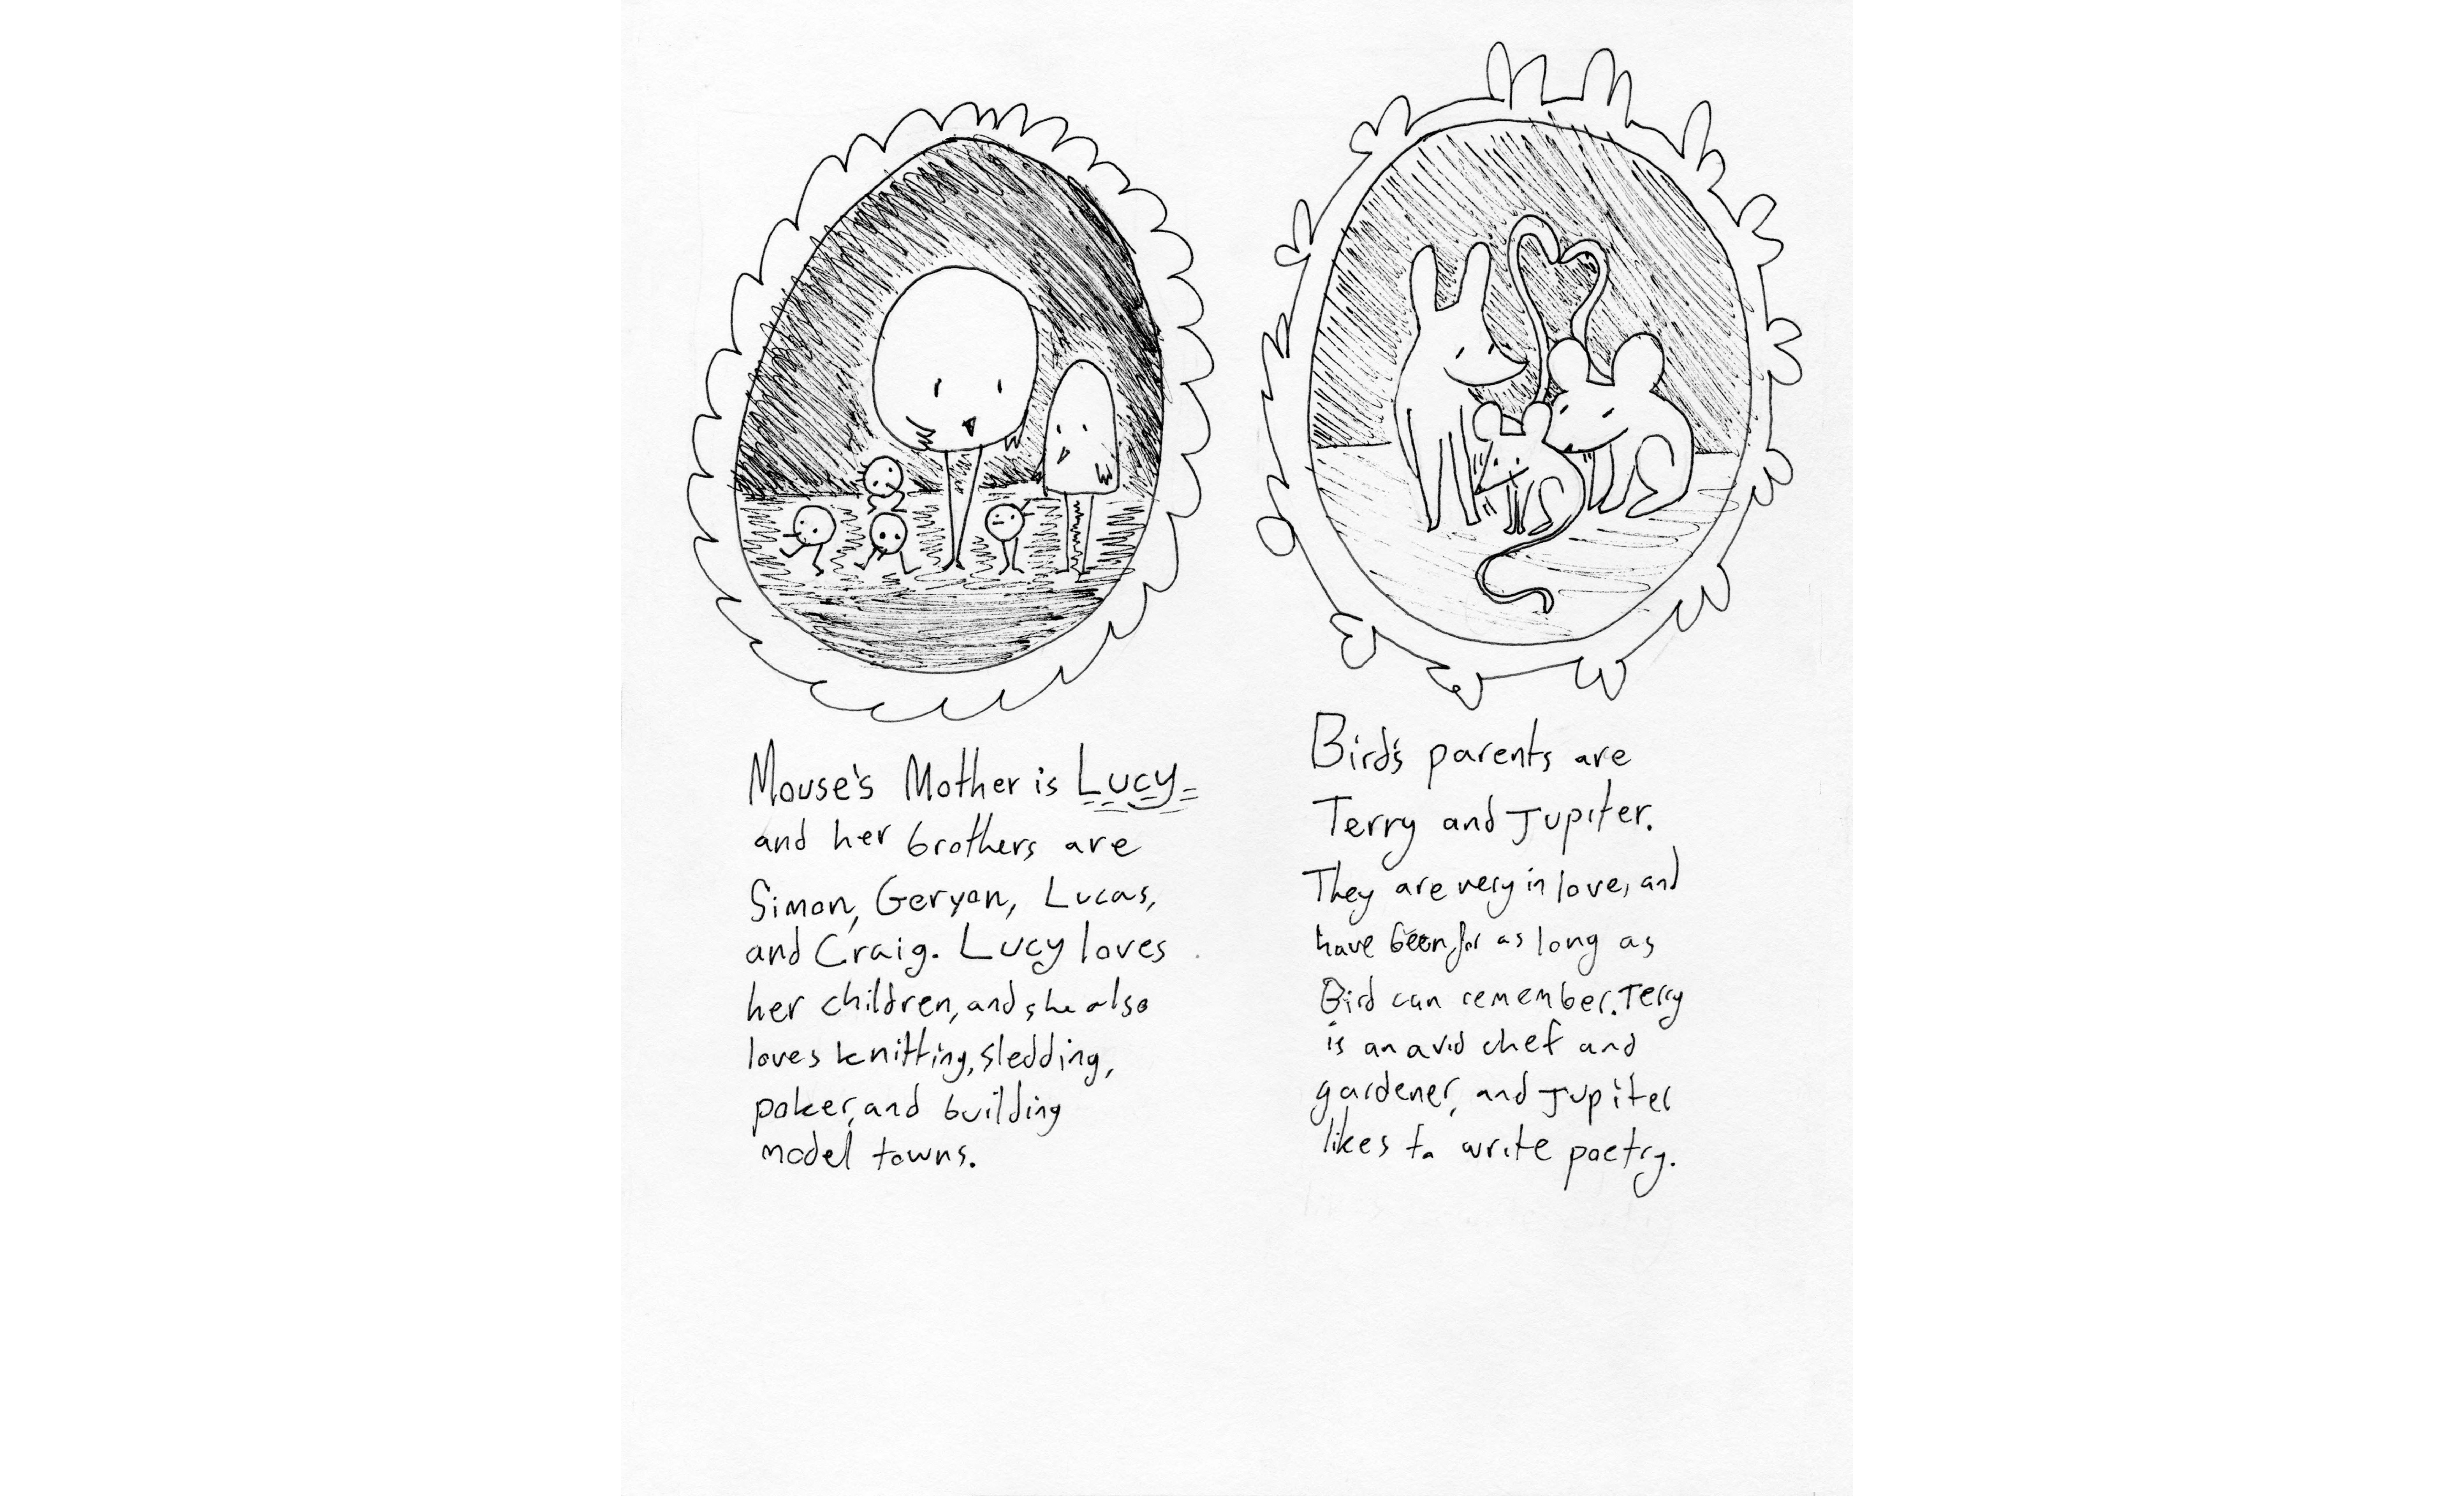 Mouse's Mother is Lucy
and her brothers are
Simon, Geryon, Lucas,
and Craig. Lucy loves
her children, and she also
loves knitting, sledding,
poker, and building
model towns.
Bird's parents are
Terry and Jupiter.
They are very in love, and
have been for as long as
Bird can remember. Terry
is an avid chef and
gardener, and Jupiter
likes to write poetry.